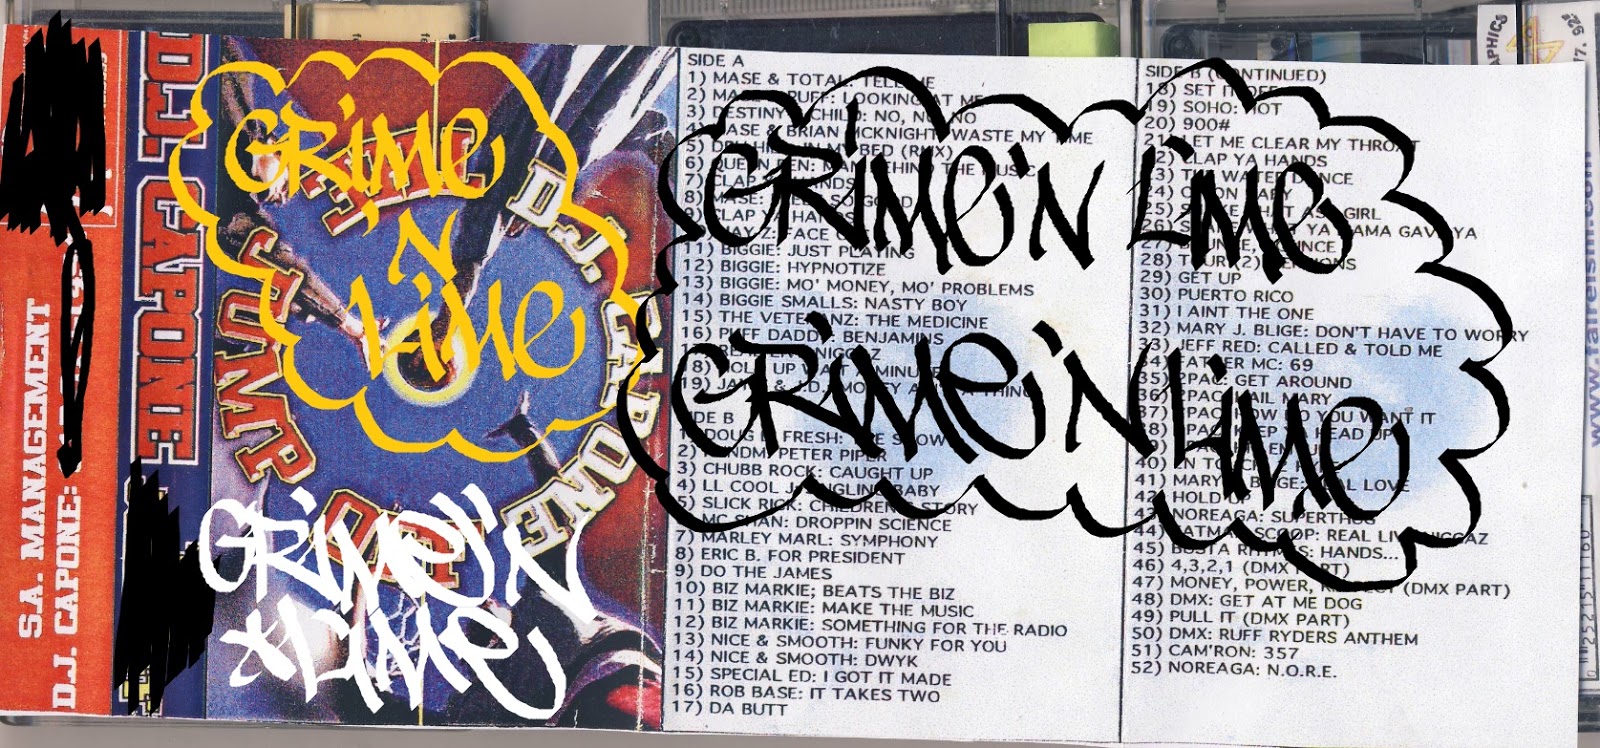 S.A. MANAGEMENT
D.J. CAPONE:
D.J. CAPONE
GRIME
'N
LIME
D.J. CAPONE
JUMP
GRIME 'N
LIME
SIDE A
1) MASE & TOTAL: TELL ME
2) MASE & PUFF: LOOKING AT ME
3) DESTINY'S CHILD: NO, NO, NO
4) MASE & BRIAN MCKNIGHT: WASTE MY TIME
5) DRU HILL: IN MY BED (RMX)
6) QUEEN PEN: MAN BEHIND THE MUSIC
7) CLAP YA HANDS
8) MASE: FEEL SO GOOD
9) CLAP YA HANDS
JAY Z: FACE
11) BIGGIE: JUST PLAYING
12) BIGGIE: HYPNOTIZE
13) BIGGIE: MO' MONEY, MO' PROBLEMS
14) BIGGIE SMALLS: NASTY BOY
15) THE VETERANZ: THE MEDICINE
16) PUFF DADDY: BENJAMINS
18) HOLD UP WAIT A MINUTE
19)
SIDE B
1) DOUG E. FRESH: THE SHOW
2) RUNDMC: PETER PIPER
3) CHUBB ROCK: CAUGHT UP
4) LL COOL J: JINGLING BABY
5) SLICK RICK: CHILDREN'S STORY
MC SHAN: DROPPIN SCIENCE
7) MARLEY MARL: SYMPHONY
8) ERIC B. FOR PRESIDENT
9) DO THE JAMES
10) BIZ MARKIE; BEATS THE BIZ
11) BIZ MARKIE: MAKE THE MUSIC
12) BIZ MARKIE: SOMETHING FOR THE RADIO
13) NICE & SMOOTH: FUNKY FOR YOU
14) NICE & SMOOTH: DWYK
15) SPECIAL ED: I GOT IT MADE
16) ROB BASE: IT TAKES TWO
17) DA BUTT
GRIME 'N LIME
GRIME 'N LIME
SIDE B (CONTINUED)
18) SET IT OFF
19) SOHO: HOT
20) 900#
21) LET ME CLEAR MY THROAT
22) CLAP YA HANDS
23) THE WATER DANCE
24)
25) SHAKE THAT ASS GIRL
26) WHAT YA MAMA GAVE YA
27) BOUNCE, BOUNCE
28)
29) GET UP
30) PUERTO RICO
31) I AINT THE ONE
32) MARY J. BLIGE: DON'T HAVE TO WORRY
33) JEFF RED: CALLED & TOLD ME
34) FATHER MC: 69
35) 2PAC: GET AROUND
36) 2PAC: HAIL MARY
37) 2PAC: HOW DO YOU WANT IT
38) 2PAC: KEEP YA HEAD UP
40)
41) MARY J. BLIGE: REAL LOVE
42) HOLD UP
43) NOREAGA: SUPERTHUG
44) FATMAN SCOOP: REAL LIVE NIGGAZ
45) BUSTA RHYMES: HANDS...
46) 4,3,2,1 (DMX PART)
47) MONEY, POWER, RESPECT (DMX PART)
48) DMX: GET AT ME DOG
49) PULL IT (DMX PART)
50) DMX: RUFF RYDERS ANTHEM
51) CAM'RON: 357
52) NOREAGA: N.O.R.E.